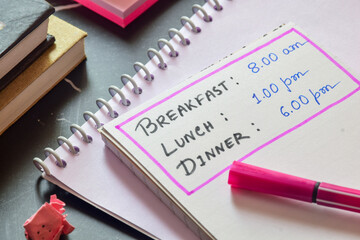 BREAKFAST: 8.00 am
LUNCH : 1.00 pm
DINNER : 6.00 pm